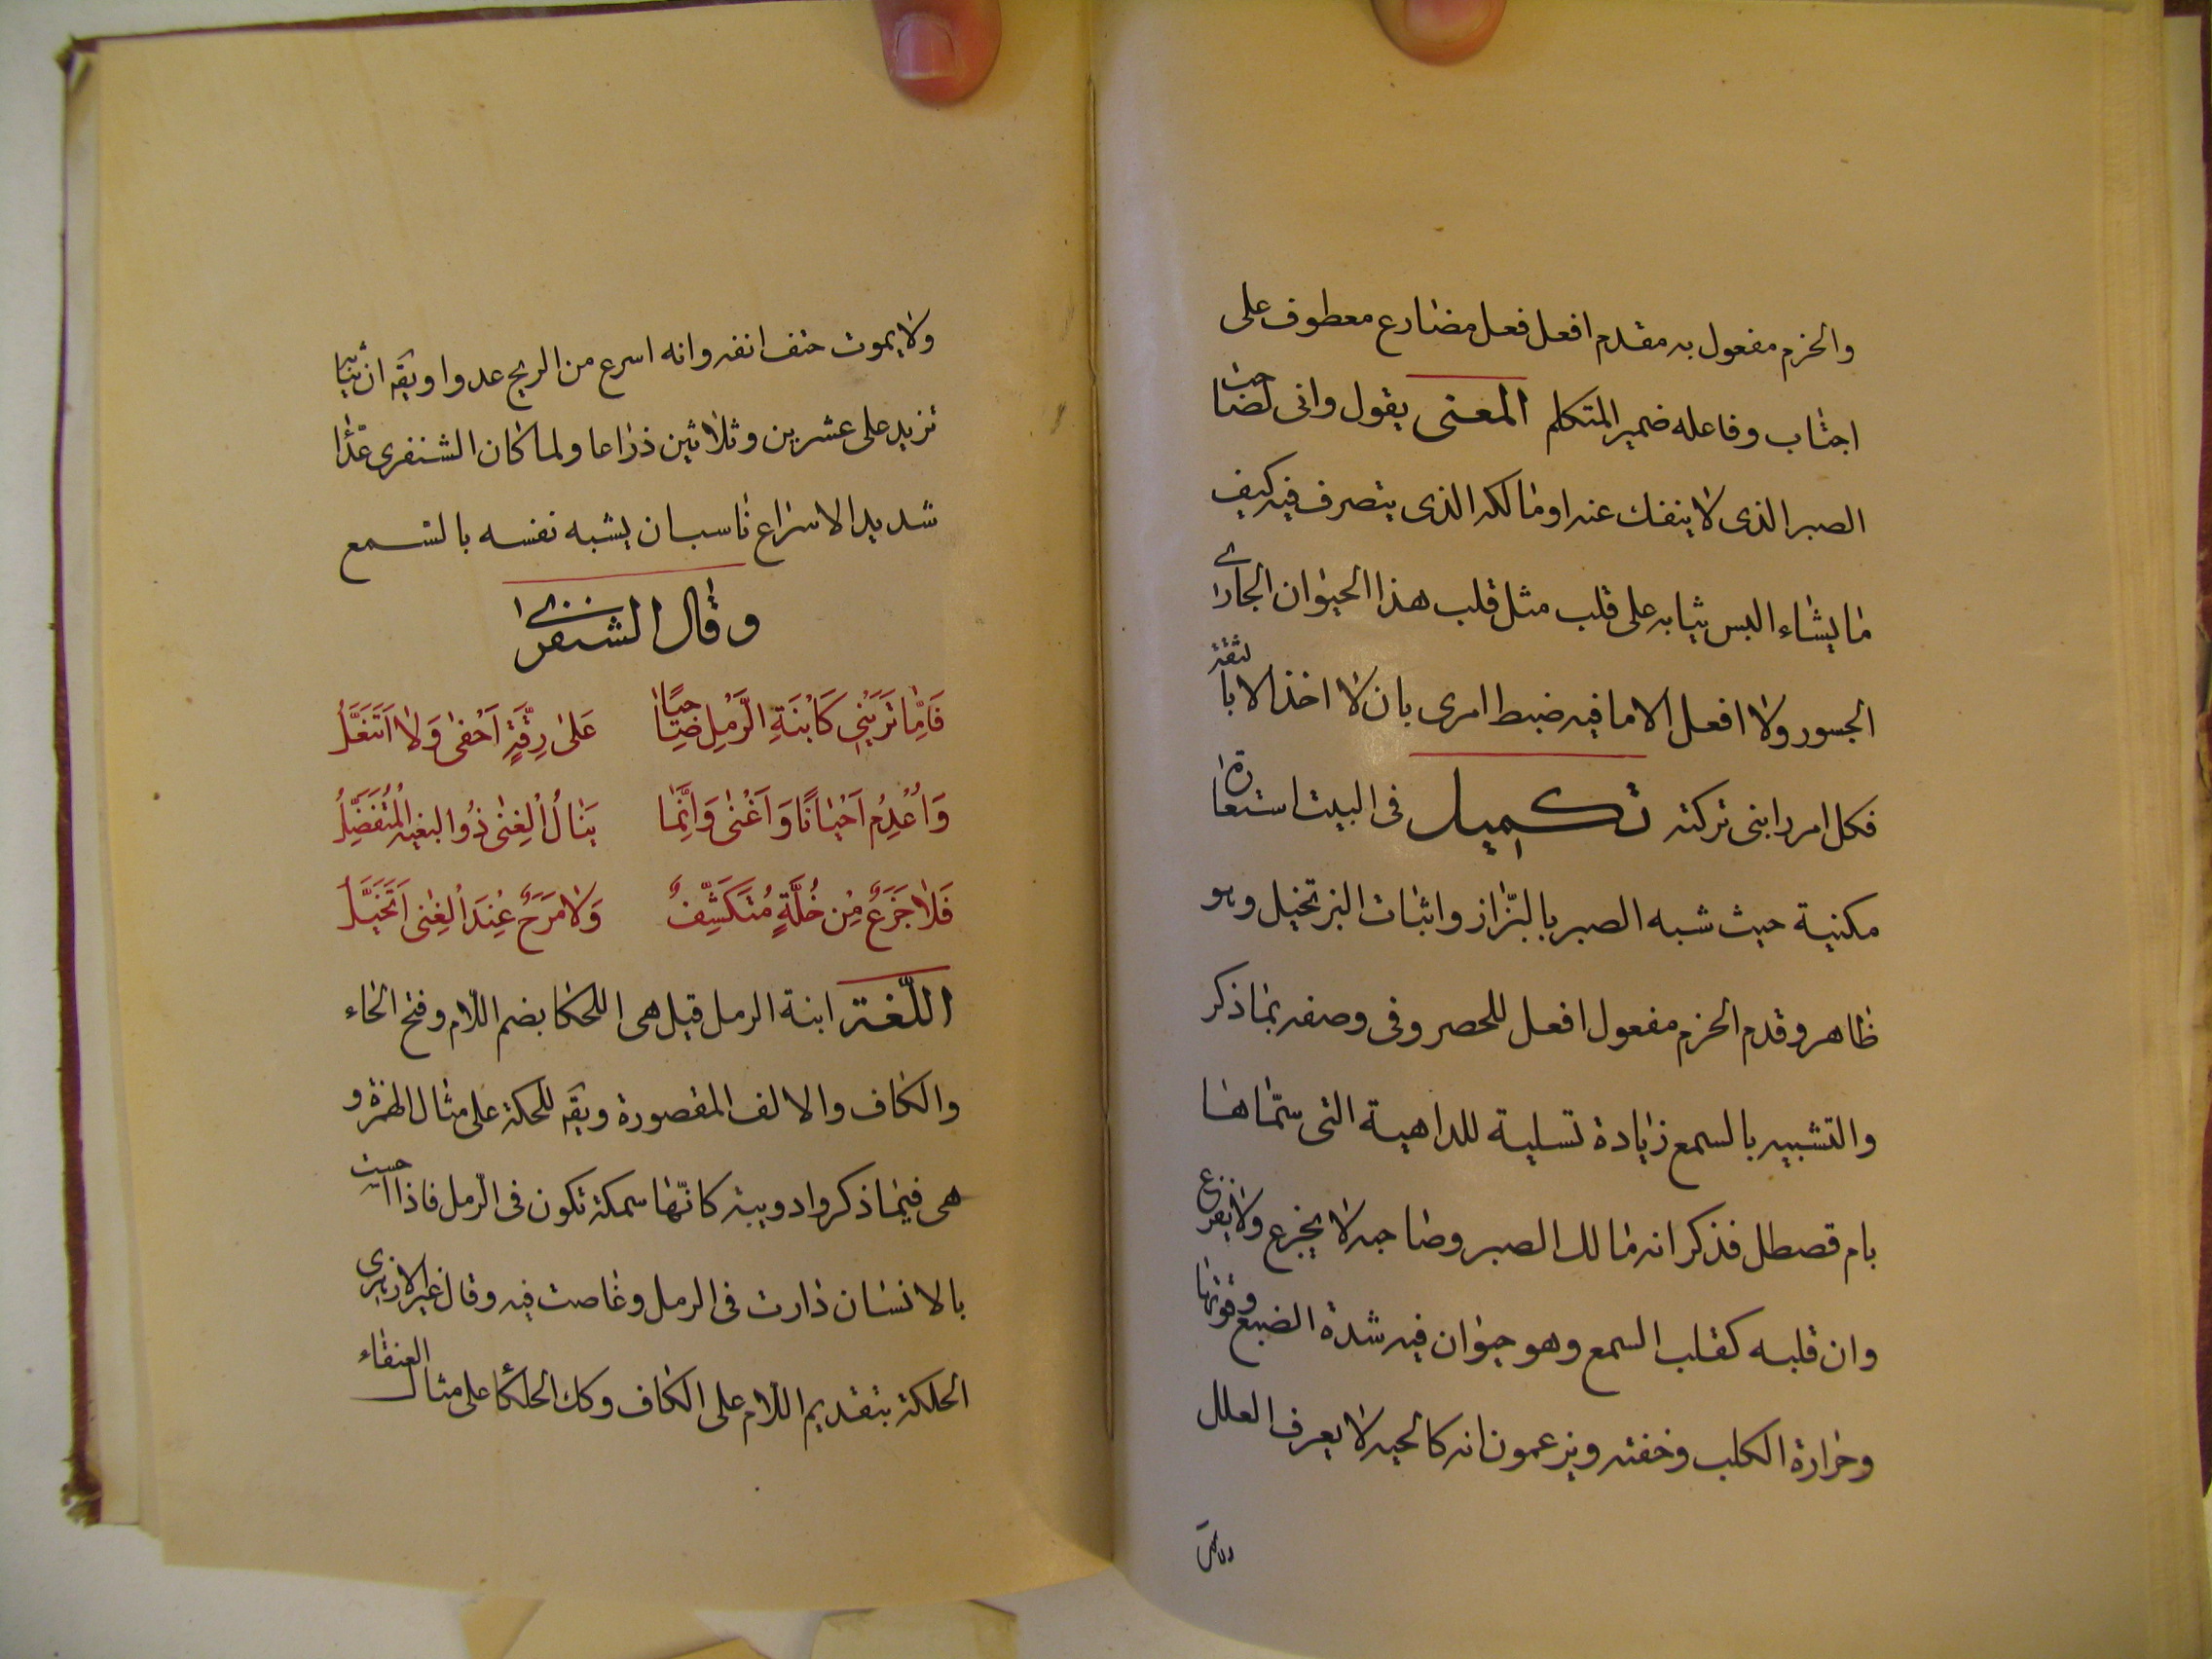 والحزم مفعول به مقدم افعل فعل مضارع معطوف على
اجتاب وفاعله ضمير المتكلم المعنى يقول وانى لصاحب
الصبر الذى لا ينفك عنه او مالكه الذى يتصرف فيه كيف
ما يشاء البس ثيابه على قلب مثل قلب هذا الحيوان الجارى
الجسور ولا افعل الا ما فيه ضبط امرى بان لا اخذ الا بالثقة
فكل امر رابنى تركته تكميل فى البيت استعارة
مكنية حيث شبه الصبر بالبزّاز واثبات البز تخيل وهو
ظاهر وقدم الحزم مفعول افعل للحصر وفى وصفه بما ذكر
والتشبيه بالسمع زيادة تسلية للداهية التى سمّاها
بام قصطل فذكر انه مالك الصبر وصاحبه لا يجزع ولا يفزع
وان قلبه كقلب السمع وهو حيوان فيه شدة الضبع وقوتها
وحرارة الكلب وخفته ويزعمون انه كالحيه لا يعرف العلل
ولا يموت حتف انفه وانه اسرع من الريح عدوا ويقه ان
تزيد على عشرين وثلاثين ذراعا ولما كان الشنفرى عدّاا
شديد الاسراع ناسب ان يشبه نفسه بالسمع
وقال الشنفرى
فَاِمَّا تَرَيْنِي كَابْنَةِ الرَّمْلِ ضَاحِيًا عَلى رِقَّةٍ اَحْفى وَلا اَتَنَعَّلُ
وَاُعْدِمُ اَحْيَانًا وَاَغْنى وَاِنَّمَا يَنَالُ الْغِنى ذُو البغيه الْمُتَفَضِّلُ
فَلا جَزَعٌ مِن خُلَّةٍ مُتَكَشِّفٌ وَلا مَرَحٌ عِنْدَ الْغِنى اَتَخَيَّلُ
اللّغة ابنة الرمل قيل هى اللحكا بضم اللّام وفتح الحاء
والكاف والالف المقصورة ويقه للحكة على مثال الهمزة و
هى فيما ذكروا دويبة كانّها سمكة تكون فى الرّمل فاذا احست
بالانسان دارت فى الرمل وغاصت فيه وقال غير الازهرى
الحلكة بتقديم اللّام على الكاف وكك الحلكا على مثال العنقاء